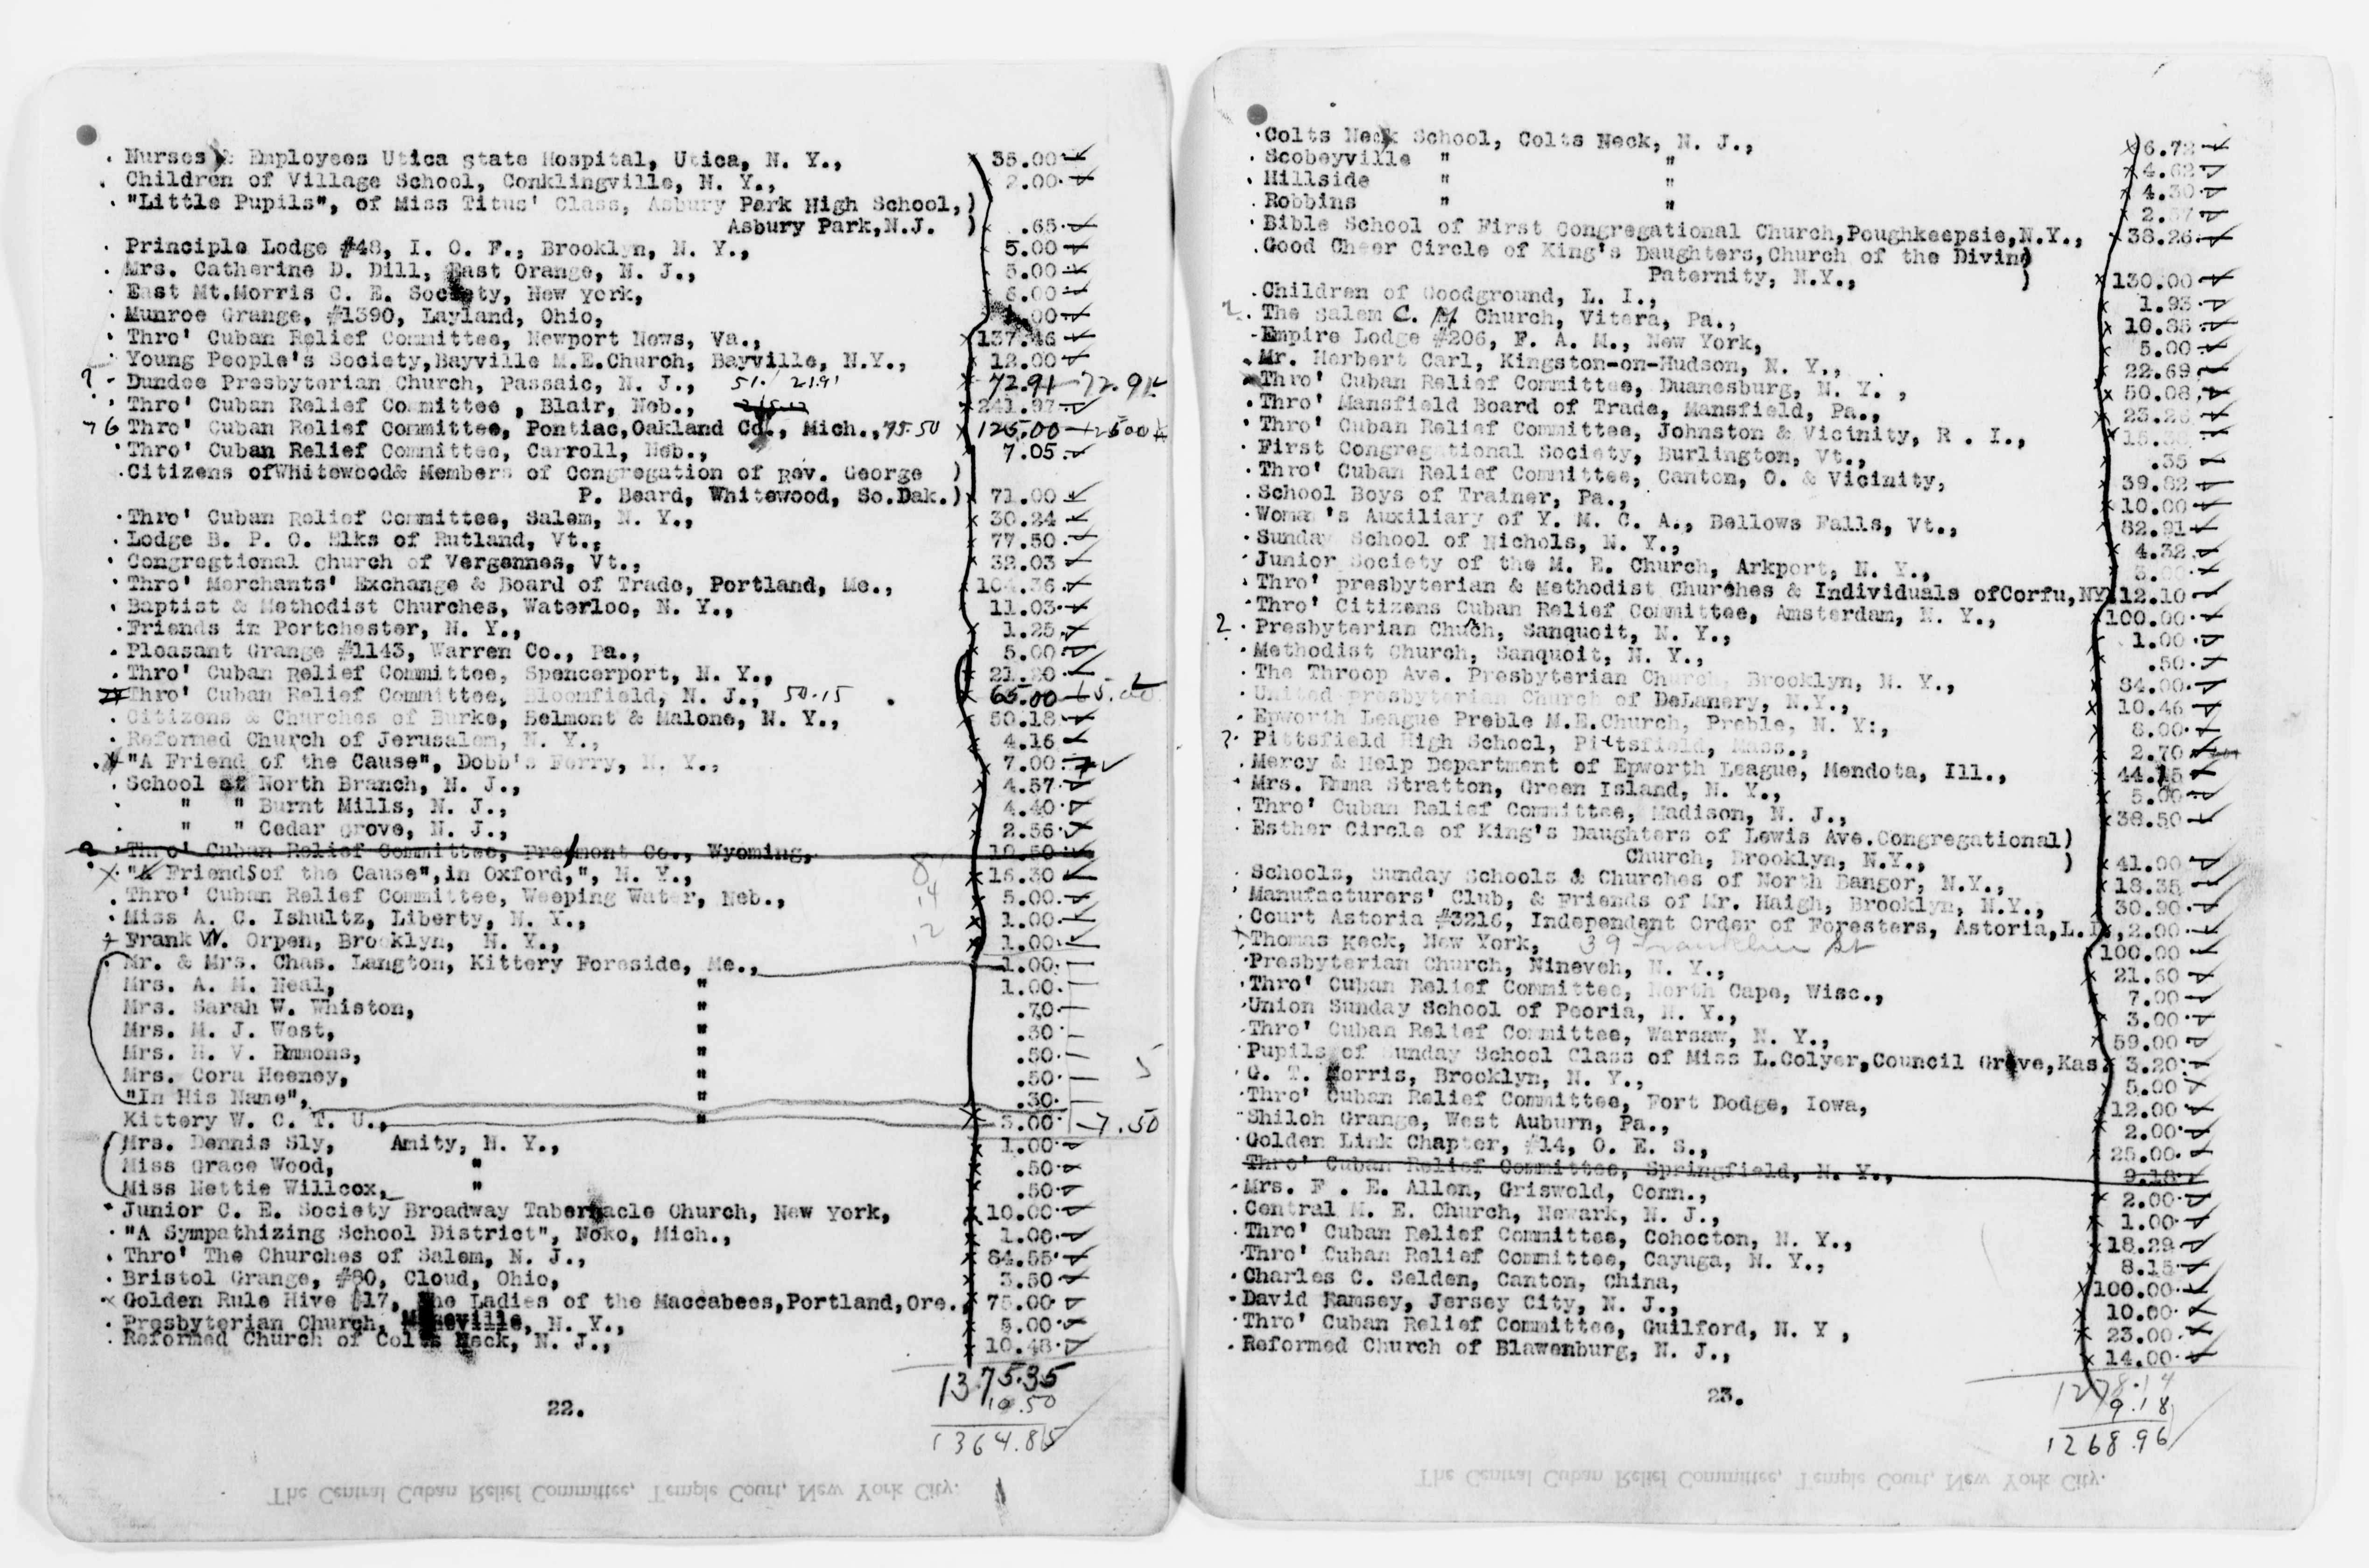 Nurses & Employees Utica state Hospital, Utica, N. Y., 35.00
Children of Village School, Conklingville, N. Y., 2.00
"Little Pupils", of Miss Titus' Class, Asbury Park High School,)
Asbury Park,N.J. ) .65
Principle Lodge #48, I. O. F., Brooklyn, N. Y., 5.00
Mrs. Catherine D. Dill, East Orange, N. J., 5.00
East Mt.Morris C. E. Society, New York, 6.00
Munroe Grange, #1390, Layland, Ohio, .00
Thro' Cuban Relief Committee, Newport News, Va., 137.46
Young People's Society,Bayville M.E.Church, Bayville, N.Y., 12.00
? Dundee Presbyterian Church, Passaic, N. J., 51. / 21.91 72.91 72.91
Thro' Cuban Relief Committee , Blair, Neb., 241.97
76 Thro' Cuban Relief Committee, Pontiac,Oakland Co., Mich., 75.50 125.00 125.00
Thro' Cuban Relief Committee, Carroll, Neb., 7.05
Citizens ofWhitewood& Members of Congregation of Rev. George )
P. Beard, Whitewood, So.Dak.) 71.00
Thro' Cuban Relief Committee, Salem, N. Y., 30.24
Lodge B. P. O. Elks of Rutland, Vt., 77.50
Congregtional Church of Vergennes, Vt., 32.03
Thro' Merchants' Exchange & Board of Trade, Portland, Me., 104.36
Baptist & Methodist Churches, Waterloo, N. Y., 11.03
Friends in Portchester, N. Y., 1.25
Pleasant Grange #1143, Warren Co., Pa., 5.00
Thro' Cuban Relief Committee, Spencerport, N. Y., 21.20
Thro' Cuban Relief Committee, Bloomfield, N. J., 50.15 65.00 65.00
Citizens & Churches of Burke, Belmont & Malone, N. Y., 50.18
Reformed Church of Jerusalem, N. Y., 4.16
"A Friend of the Cause", Dobb's Ferry, N. Y., 7.00
School of North Branch, N. J., 4.57
" " Burnt Mills, N. J., 4.40
" " Cedar Grove, N. J., 2.56
? Thro' Cuban Relief Committee, Fremont Co., Wyoming, 10.50
" Friends of the Cause",in Oxford,", N. Y., 16.30
Thro' Cuban Relief Committee, Weeping Water, Neb., 5.00
Miss A. C. Ishultz, Liberty, N. Y., 1.00
Frank W. Orpen, Brooklyn, N. Y., 1.00
Mr. & Mrs. Chas. Langton, Kittery Foreside, Me., 1.00
Mrs. A. M. Neal, " 1.00
Mrs. Sarah W. Whiston, " .70
Mrs. M. J. West, " .30
Mrs. H. V. Emmons, " .50
Mrs. Cora Heeney, " .50
"In His Name", " .30
Kittery W. C. T. U., " 3.00 7.50
Mrs. Dennis Sly, Amity, N. Y., 1.00
Miss Grace Wood, " .50
Miss Nettie Willcox, " .50
Junior C. E. Society Broadway Tabernacle Church, New York, 10.00
"A Sympathizing School District", Noko, Mich., 1.00
Thro' The Churches of Salem, N. J., 84.55
Bristol Grange, #80, Cloud, Ohio, 3.50
Golden Rule Hive #17, The Ladies of the Maccabees,Portland,Ore., 75.00
Presbyterian Church, N. Y., 5.00
Reformed Church of Colts Neck, N. J., 10.48
1375.35
10.50
1364.85
22.
The Central Cuban Relief Committee, Temple Court, New York City.
Colts Neck School, Colts Neck, N. J., 6.72
Scobeyville " " 4.62
Hillside " " 4.30
Robbins " " 2.37
Bible School of First Congregational Church,Poughkeepsie,N.Y., 38.26
Good Cheer Circle of King's Daughters,Church of the Divine)
Paternity, N.Y., ) 130.00
Children of Goodground, L. I., 1.93
? The Salem C. M. Church, Vitera, Pa., 10.85
Empire Lodge #206, F. A. M., New York, 5.00
Mr. Herbert Carl, Kingston-on-Hudson, N. Y., 22.69
Thro' Cuban Relief Committee, Duanesburg, N. Y. , 50.08
Thro' Mansfield Board of Trade, Mansfield, Pa., 23.26
Thro' Cuban Relief Committee, Johnston & Vicinity, R . I.,
First Congregational Society, Burlington, Vt., .35
Thro' Cuban Relief Committee, Canton, O. & Vicinity, 39.82
School Boys of Trainer, Pa., 10.00
Woman's Auxiliary of Y. M. C. A., Bellows Falls, Vt., 82.91
Sunday School of Nichols, N. Y., 4.32
Junior Society of the M. E. Church, Arkport, N. Y., 3.00
Thro' Presbyterian & Methodist Churches & Individuals ofCorfu,NY 12.10
Thro' Citizens Cuban Relief Committee, Amsterdam, N. Y., 100.00
? Presbyterian Chuch, Sanquoit, N. Y., 1.00
Methodist Church, Sanquoit, N. Y., .50
The Throop Ave. Presbyterian Church, Brooklyn, N. Y., 84.00
United Presbyterian Church of DeLanery, N.Y., 10.46
Epworth League Preble M.E.Church, Preble, N. Y:, 8.00
? Pittsfield High School, Pittsfield, Mass., 2.70
Mercy & Help Department of Epworth League, Mendota, Ill., 44.15
Mrs. Emma Stratton, Green Island, N. Y., 5.00
Thro' Cuban Relief Committee, Madison, N. J., 38.50
Esther Circle of King's Daughters of Lewis Ave.Congregational)
Church, Brooklyn, N.Y., ) 41.00
Schools, Sunday Schools & Churches of North Bangor, N.Y., 18.35
Manufacturers' Club, & Friends of Mr. Haigh, Brooklyn, N.Y., 30.90
Court Astoria #3216, Independent Order of Foresters, Astoria,L.I., 2.00
Thomas Keck, New York, 39 Franklin St 100.00
Presbyterian Church, Nineveh, N. Y., 21.60
Thro' Cuban Relief Committee, North Cape, Wisc., 7.00
Union Sunday School of Peoria, N. Y., 3.00
Thro' Cuban Relief Committee, Warsaw, N. Y., 59.00
Pupils of Sunday School Class of Miss L.Colyer,Council Grove,Kas. 3.20
G. T. Morris, Brooklyn, N. Y., 5.00
Thro' Cuban Relief Committee, Fort Dodge, Iowa, 12.00
Shiloh Grange, West Auburn, Pa., 2.00
Golden Link Chapter, #14, O. E. S., 25.00
Thro' Cuban Relief Committee, Springfield, N. Y., 9.18
Mrs. F . E. Allen, Griswold, Conn., 2.00
Central M. E. Church, Newark, N. J., 1.00
Thro' Cuban Relief Committee, Cohocton, N. Y., 18.29
Thro' Cuban Relief Committee, Cayuga, N. Y., 8.15
Charles C. Selden, Canton, China, 100.00
David Ramsey, Jersey City, N. J., 10.00
Thro' Cuban Relief Committee, Guilford, N. Y , 23.00
Reformed Church of Blawenburg, N. J., 14.00
1278.14
9.18
1268.96
23.
The Central Cuban Relief Committee, Temple Court, New York City.